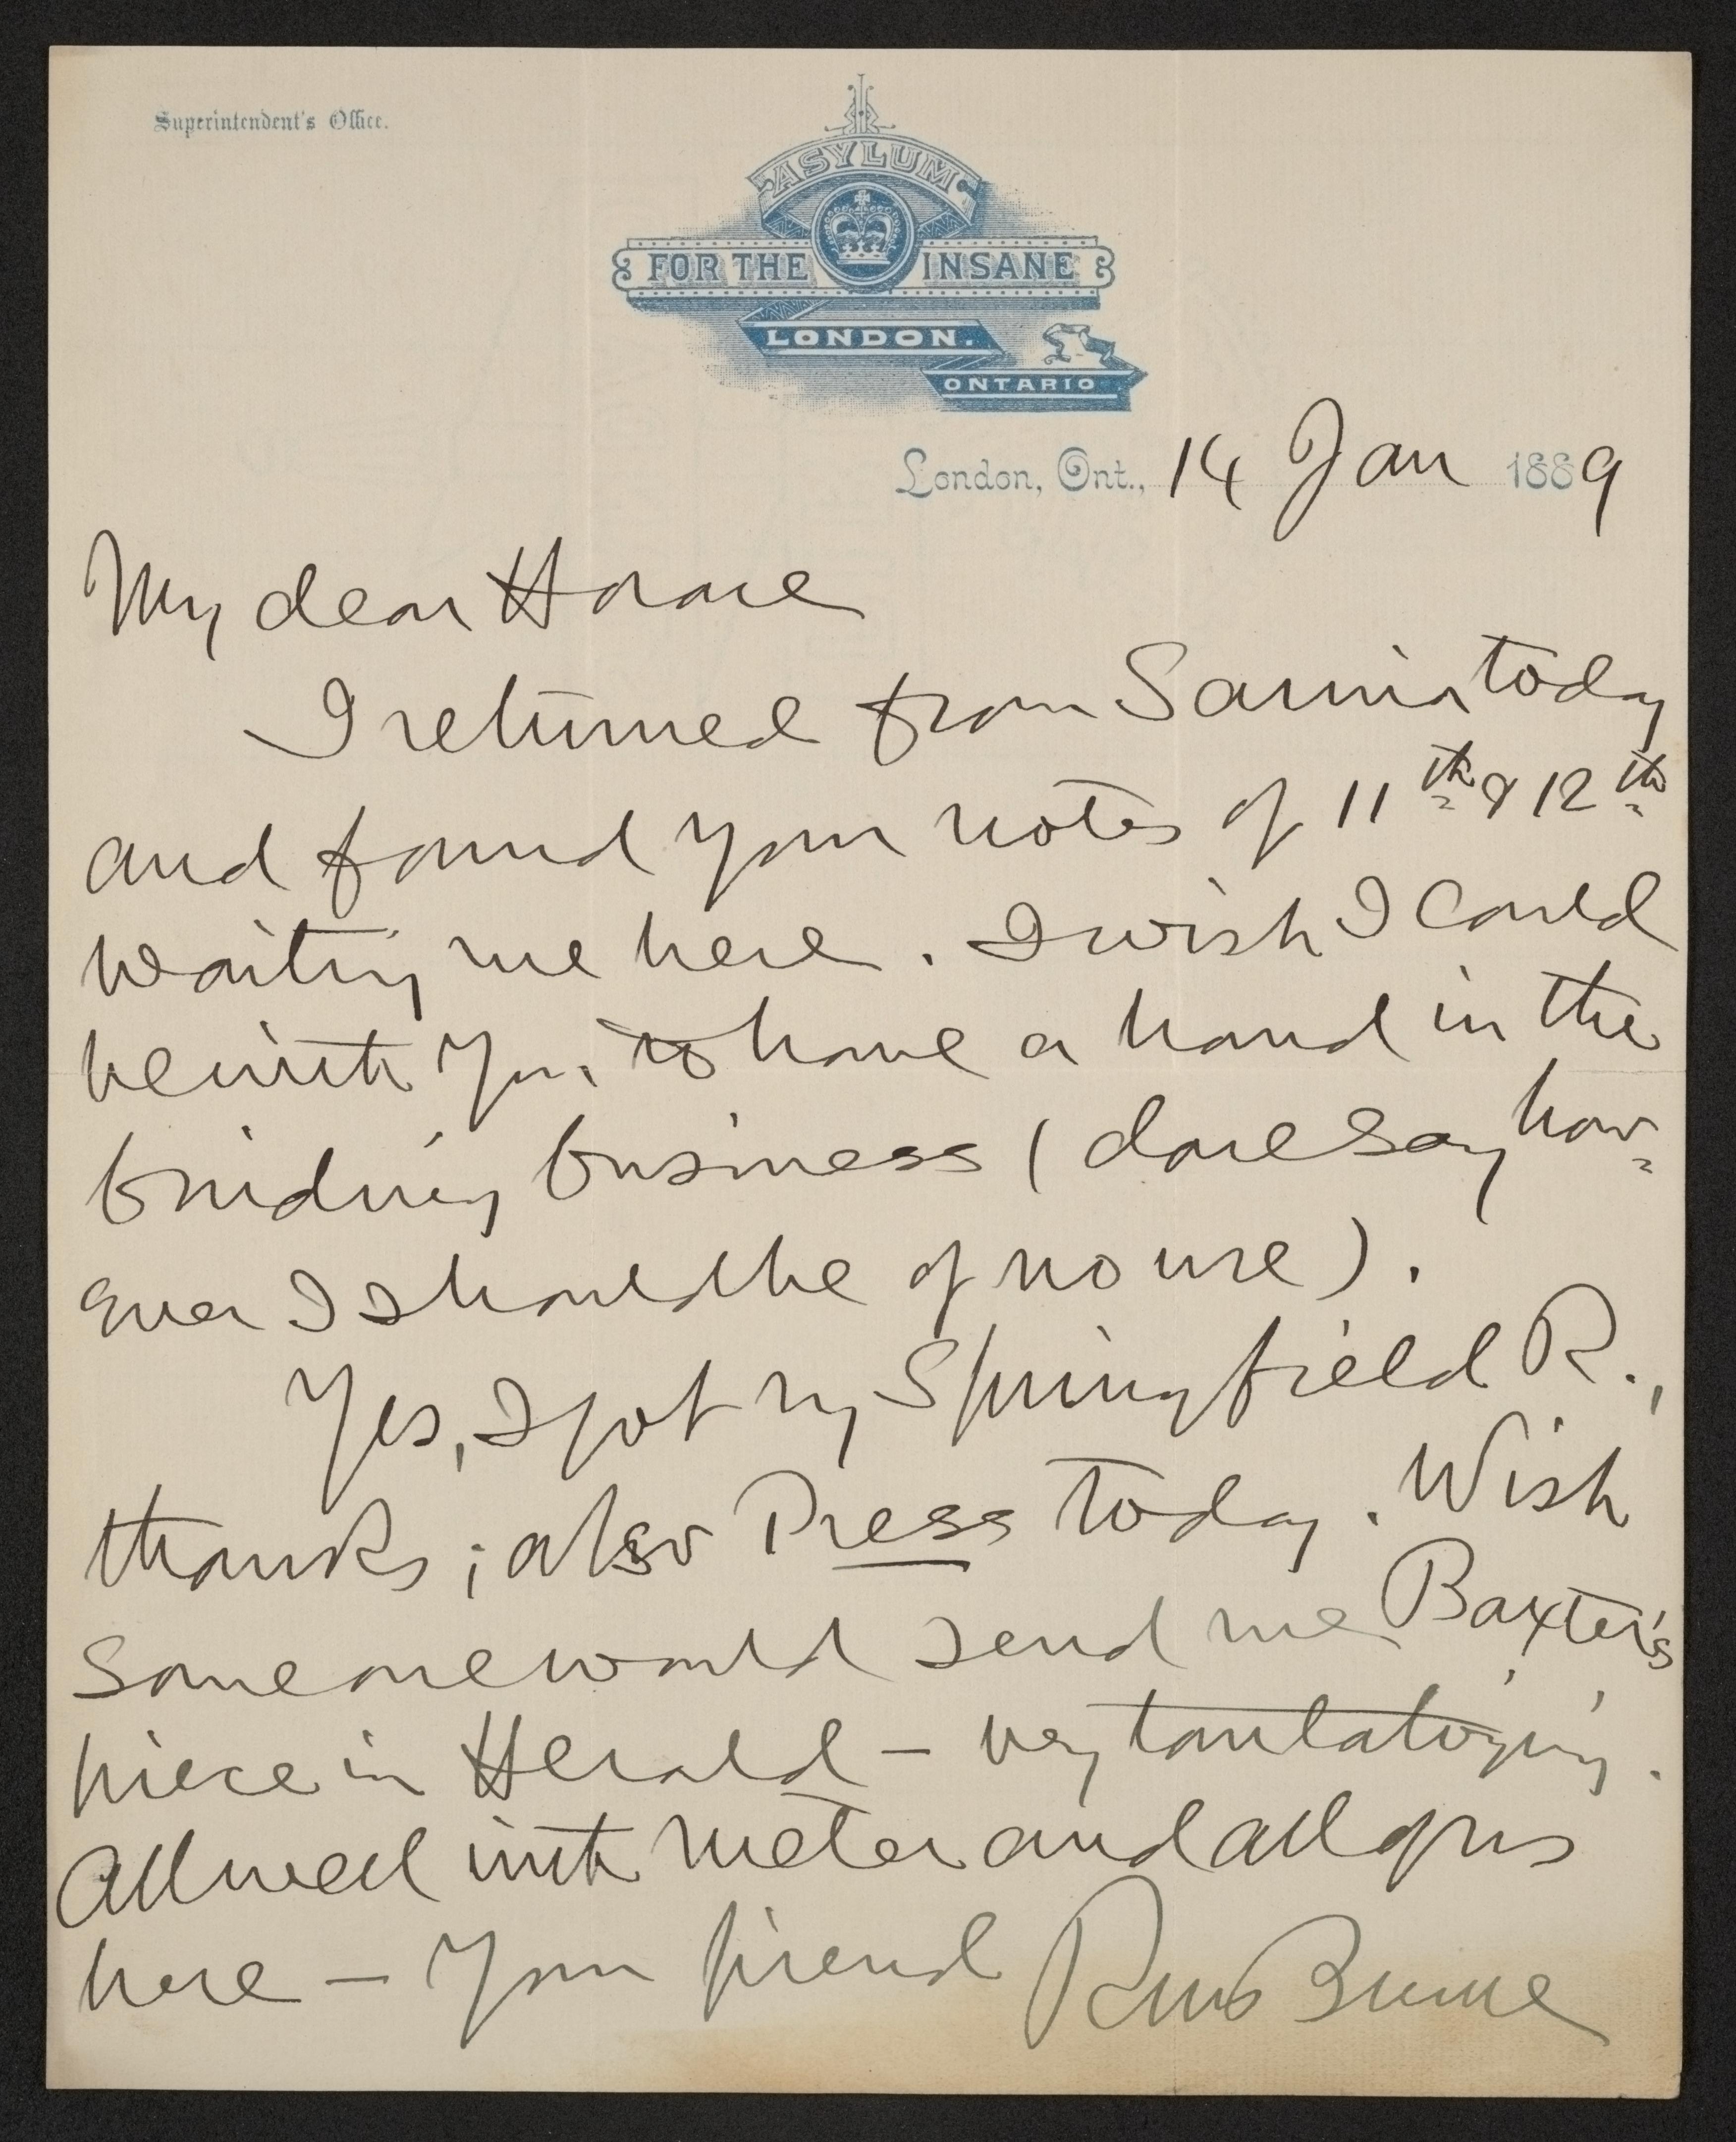 Superintendent's Office.
ASYLUM
FOR THE INSANE
LONDON.
ONTARIO
London, Ont., 14 Jan 1889
My dear Horace
I returned from Sarnia today
and found your notes of 11th & 12th
waiting me here. I wish I could
be with you, to have a hand in the
binding business (dare say how-
ever I should be of no use).
Yes, I got my Springfield R.,
thanks; also Press today. Wish
some one would send me Baxter's
piece in Herald — very tantalizing.
All well with meter and all of us
here — Your friend RM Bucke